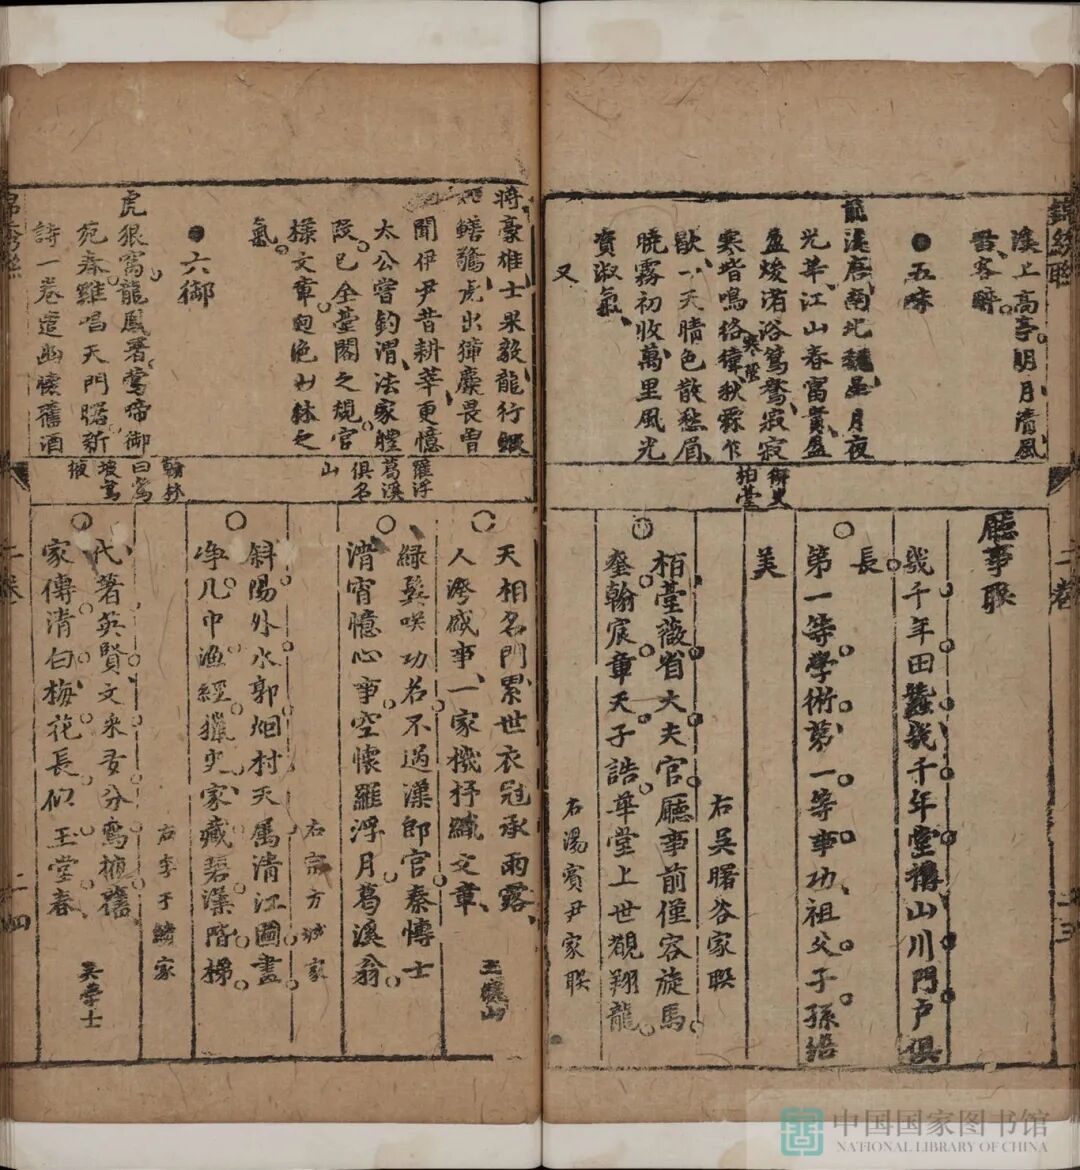 溪上高亭明月清風
留客醉
●五味
龍溪唐南北魏呈月夜
光華江山春富貴盈
盈煖渚浴鴛鴦寂寂
寒堦鳴絡緯秋霖乍
歇一天晴色散愁眉
曉霧初收萬里風光
賓淑氣
又
御史
柏臺
廳事聯
幾千年田蠶幾千年堂構山川門戶俱
長
第一等學術第一等事功祖父子孫
美
栢臺薇省大夫官廳事前僅容旋馬
奎翰宸章天子誥華堂上世覩翔龍
右吳曙谷家聯
右湯賓尹家聯
二卷
二三
將豪雄士果毅龍行
鱔驚虎出獐麋畏曾
聞伊尹昔耕莘更憶
太公嘗釣渭法家體
段已全臺閣之規官
樣文章迥絕廾林之
氣
●六御
虎狼窩龍鳳署鶯啼御
苑春雞唱天門曙新
詩一卷遣幽懷舊酒
羅浮
葛溪
俱名
山
翰林
曰鸞
坡鸞
掖
天相名門累世衣冠承雨露
人濟盛事一家機杼織文章
綠鬓咲功名不過漢郎官秦博士
清宵憶心事空懷羅浮月葛溪翁
斜陽外水郭烟村天属清江圖畫
净几中漁經獵史家藏碧澡階梯
右宗方城家
代著英賢文采分鸞掖舊
家傳清白梅花長似玉堂春
右李于鱗家
吳學士
二卷
二四